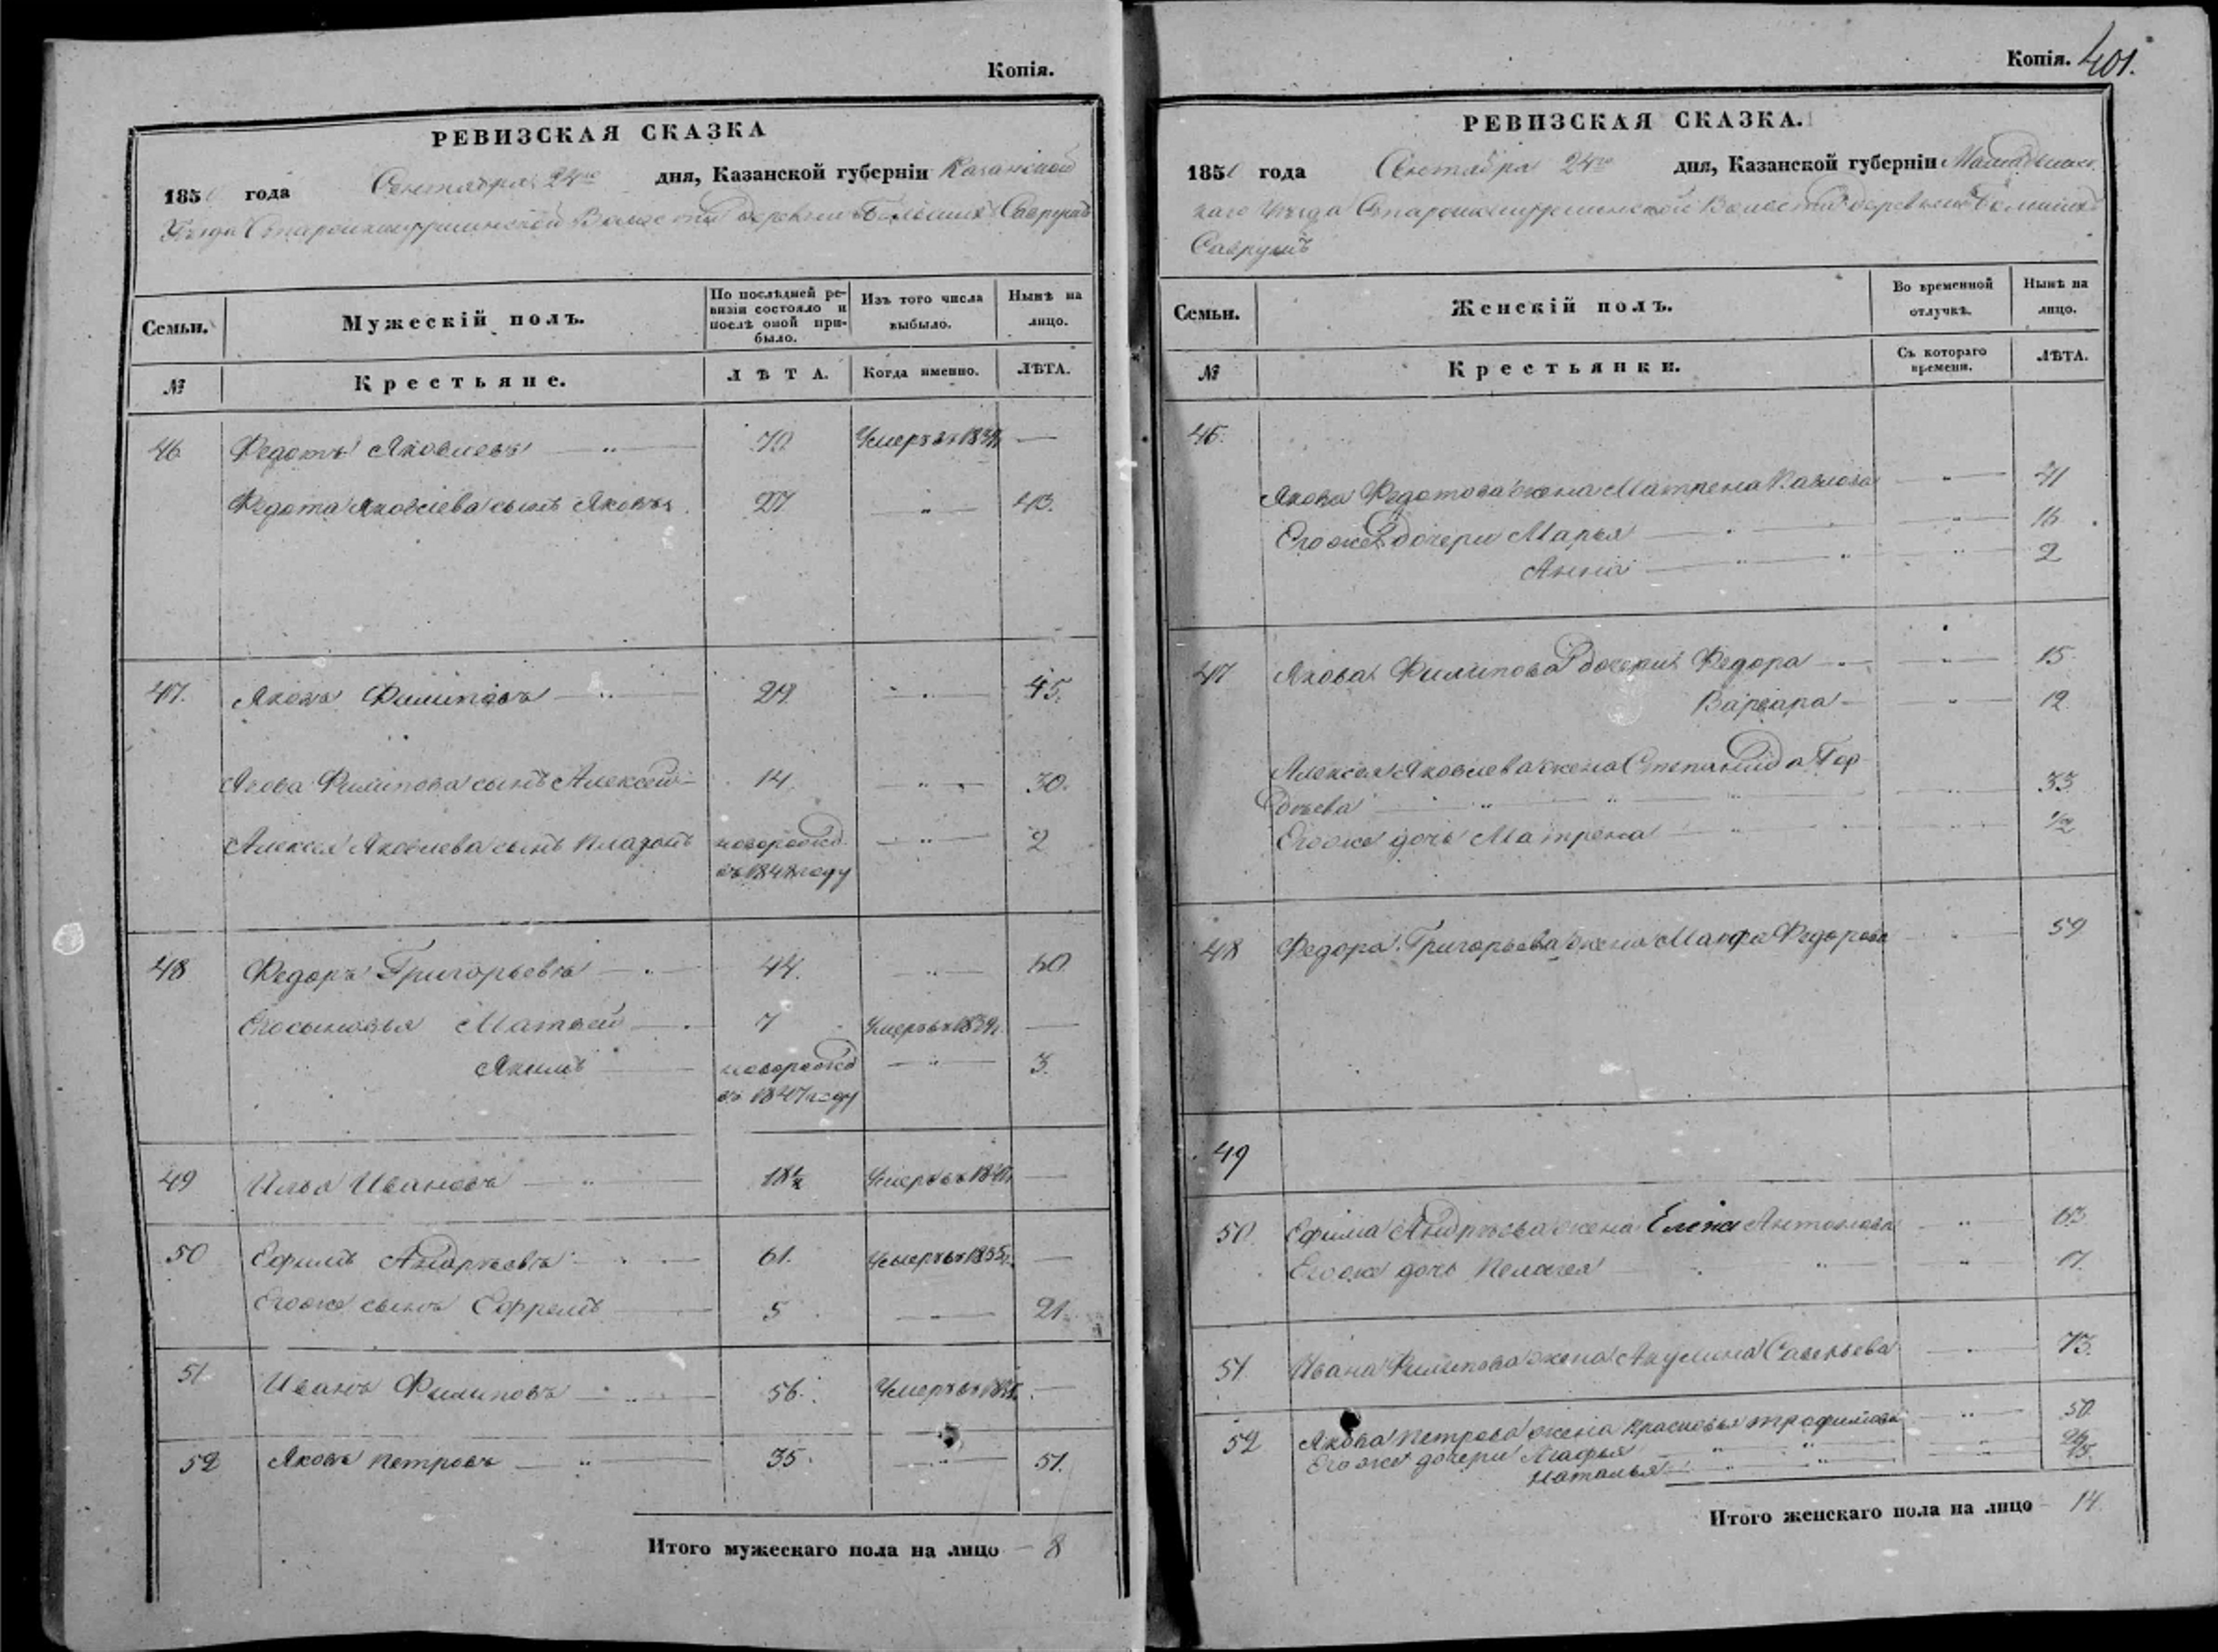 Копія.
РЕВИЗСКАЯ СКАЗКА
185 года Сентября 24го дня, Казанской губерніи Казанской
Уѣзда Волости деревни Большихъ Саврушъ
Семьи.
Мужескій полъ.
По послѣдней ре-
визіи состояло и
послѣ оной при-
было.
Изъ того числа
выбыло.
Нынѣ на
лицо.
№
Крестьяне.
ЛѢТА.
Когда именно.
ЛѢТА.
46 Федотъ Яковлевъ 70 Умеръ въ —
Федота Яковлева сынъ Яковъ 27 — 43.
47. Яковъ Филиповъ 29 — 45.
Якова Филипова сынъ Алексей 14 — 30.
Алексея Яковлева сынъ новорожд. — 2
въ 1848 году
48 Федоръ Григорьевъ 44. — 60
Его сыновья Матвей 7 Умеръ въ 1839г. —
Якимъ новорожд — 3.
въ 1847 году
49 Илья Ивановъ Умеръ въ —
50 Ефимъ Андреевъ 61. Умеръ въ 1835г. —
Его же сынъ Ефремъ 5 — 21.
51. Иванъ Филиповъ 56. Умеръ въ —
52 Яковъ Петровъ — 35. — 51.
Итого мужескаго пола на лицо — 8
Копія. 401.
РЕВИЗСКАЯ СКАЗКА.
185 года Сентября 24го дня, Казанской губерніи
каго Уѣзда Волости деревни Большихъ
Саврушъ
Семьи.
Женскій полъ.
Во временной
отлучкѣ.
Нынѣ на
лицо.
№
Крестьянки.
Съ котораго
времени.
ЛѢТА.
46.
Якова Федотова жена Матрена Павлова — 41
Его же 2 дочери Марья — 16
Анна — 2
47 Якова Филипова 2 дочери Федора — 15
Варвара — 12
Алексея Яковлева жена Степанида Гор
дѣева — 33
Его же дочь Матрена — 1/2
48 Федора Григорьева жена Марфа Федорова — 59
49
50. Ефима Андреева жена Елена Антонова — 63
Его же дочь Пелагея — 17.
51. Ивана Филипова жена Акулина Савельева — 73.
52 Якова Петрова жена Прасковья Трофимова — 50
Его же дочери Агафья — 26
Наталья — 15.
Итого женскаго пола на лицо — 14.